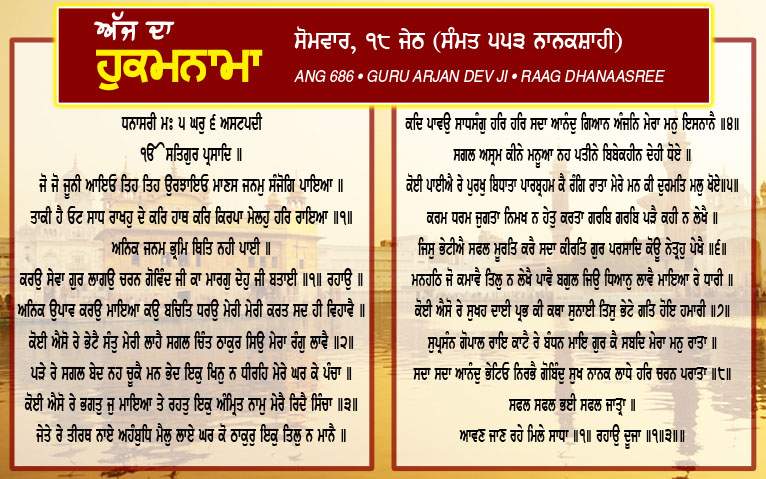 ਅੱਜ ਦਾ
ਹੁਕਮਨਾਮਾ
ਸੋਮਵਾਰ, ੧੮ ਜੇਠ (ਸੰਮਤ ੫੫੩ ਨਾਨਕਸ਼ਾਹੀ)
ANG 686 • GURU ARJAN DEV JI • RAAG DHANAASREE
ਧਨਾਸਰੀ ਮਃ ੫ ਘਰੁ ੬ ਅਸਟਪਦੀ
ੴ ਸਤਿਗੁਰ ਪ੍ਰਸਾਦਿ ॥
ਜੋ ਜੋ ਜੂਨੀ ਆਇਓ ਤਿਹ ਤਿਹ ਉਰਝਾਇਓ ਮਾਣਸ ਜਨਮੁ ਸੰਜੋਗਿ ਪਾਇਆ ॥
ਤਾਕੀ ਹੈ ਓਟ ਸਾਧ ਰਾਖਹੁ ਦੇ ਕਰਿ ਹਾਥ ਕਰਿ ਕਿਰਪਾ ਮੇਲਹੁ ਹਰਿ ਰਾਇਆ ॥੧॥
ਅਨਿਕ ਜਨਮ ਭ੍ਰਮਿ ਥਿਤਿ ਨਹੀ ਪਾਈ ॥
ਕਰਉ ਸੇਵਾ ਗੁਰ ਲਾਗਉ ਚਰਨ ਗੋਵਿੰਦ ਜੀ ਕਾ ਮਾਰਗੁ ਦੇਹੁ ਜੀ ਬਤਾਈ ॥੧॥ ਰਹਾਉ ॥
ਅਨਿਕ ਉਪਾਵ ਕਰਉ ਮਾਇਆ ਕਉ ਬਚਿਤਿ ਧਰਉ ਮੇਰੀ ਮੇਰੀ ਕਰਤ ਸਦ ਹੀ ਵਿਹਾਵੈ ॥
ਕੋਈ ਐਸੋ ਰੇ ਭੇਟੈ ਸੰਤੁ ਮੇਰੀ ਲਾਹੈ ਸਗਲ ਚਿੰਤ ਠਾਕੁਰ ਸਿਉ ਮੇਰਾ ਰੰਗੁ ਲਾਵੈ ॥੨॥
ਪੜੇ ਰੇ ਸਗਲ ਬੇਦ ਨਹ ਚੂਕੈ ਮਨ ਭੇਦ ਇਕੁ ਖਿਨੁ ਨ ਧੀਰਹਿ ਮੇਰੇ ਘਰ ਕੇ ਪੰਚਾ ॥
ਕੋਈ ਐਸੋ ਰੇ ਭਗਤੁ ਜੁ ਮਾਇਆ ਤੇ ਰਹਤੁ ਇਕੁ ਅੰਮ੍ਰਿਤ ਨਾਮੁ ਮੇਰੈ ਰਿਦੈ ਸਿੰਚਾ ॥੩॥
ਜੇਤੇ ਰੇ ਤੀਰਥ ਨਾਏ ਅਹੰਬੁਧਿ ਮੈਲੁ ਲਾਏ ਘਰ ਕੋ ਠਾਕੁਰੁ ਇਕੁ ਤਿਲੁ ਨ ਮਾਨੈ ॥
ਕਦਿ ਪਾਵਉ ਸਾਧਸੰਗੁ ਹਰਿ ਹਰਿ ਸਦਾ ਆਨੰਦੁ ਗਿਆਨ ਅੰਜਨਿ ਮੇਰਾ ਮਨੁ ਇਸਨਾਨੈ ॥੪॥
ਸਗਲ ਅਸ੍ਰਮ ਕੀਨੇ ਮਨੂਆ ਨਹ ਪਤੀਨੇ ਬਿਬੇਕਹੀਨ ਦੇਹੀ ਧੋਏ ॥
ਕੋਈ ਪਾਈਐ ਰੇ ਪੁਰਖੁ ਬਿਧਾਤਾ ਪਾਰਬ੍ਰਹਮ ਕੈ ਰੰਗਿ ਰਾਤਾ ਮੇਰੇ ਮਨ ਕੀ ਦੁਰਮਤਿ ਮਲੁ ਖੋਏ॥੫॥
ਕਰਮ ਧਰਮ ਜੁਗਤਾ ਨਿਮਖ ਨ ਹੇਤੁ ਕਰਤਾ ਗਰਬਿ ਗਰਬਿ ਪੜੈ ਕਹੀ ਨ ਲੇਖੈ ॥
ਜਿਸੁ ਭੇਟੀਐ ਸਫਲ ਮੂਰਤਿ ਕਰੈ ਸਦਾ ਕੀਰਤਿ ਗੁਰ ਪਰਸਾਦਿ ਕੋਊ ਨੇਤ੍ਰਹੁ ਪੇਖੈ ॥੬॥
ਮਨਹਠਿ ਜੋ ਕਮਾਵੈ ਤਿਲੁ ਨ ਲੇਖੈ ਪਾਵੈ ਬਗੁਲ ਜਿਉ ਧਿਆਨੁ ਲਾਵੈ ਮਾਇਆ ਰੇ ਧਾਰੀ ॥
ਕੋਈ ਐਸੋ ਰੇ ਸੁਖਹ ਦਾਈ ਪ੍ਰਭ ਕੀ ਕਥਾ ਸੁਨਾਈ ਤਿਸੁ ਭੇਟੇ ਗਤਿ ਹੋਇ ਹਮਾਰੀ ॥੭॥
ਸੁਪ੍ਰਸੰਨ ਗੋਪਾਲ ਰਾਇ ਕਾਟੈ ਰੇ ਬੰਧਨ ਮਾਇ ਗੁਰ ਕੈ ਸਬਦਿ ਮੇਰਾ ਮਨੁ ਰਾਤਾ ॥
ਸਦਾ ਸਦਾ ਆਨੰਦੁ ਭੇਟਿਓ ਨਿਰਭੈ ਗੋਬਿੰਦੁ ਸੁਖ ਨਾਨਕ ਲਾਧੇ ਹਰਿ ਚਰਨ ਪਰਾਤਾ ॥੮॥
ਸਫਲ ਸਫਲ ਭਈ ਸਫਲ ਜਾਤ੍ਰਾ ॥
ਆਵਣ ਜਾਣ ਰਹੇ ਮਿਲੇ ਸਾਧਾ ॥੧॥ ਰਹਾਉ ਦੂਜਾ ॥੧॥੩॥